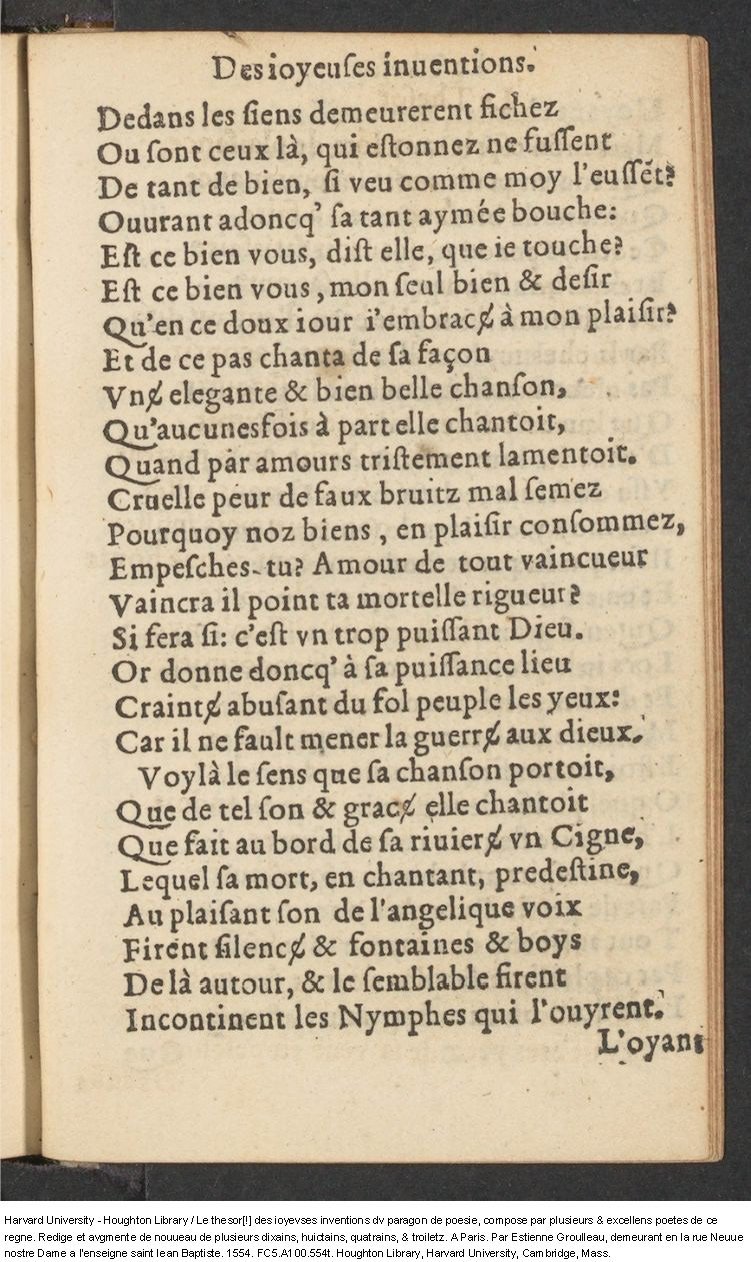 Des ioyeuſes inuentions.
Dedans les ſiens demeurerent fichez
Ou ſont ceux là, qui eſtonnez ne fuſſent
De tant de bien, ſi veu comme moy l'euſſẽt?
Ouurant adoncq' ſa tant aymée bouche:
Eſt ce bien vous, diſt elle, que ie touche?
Eſt ce bien vous, mon ſeul bien & deſir
Qu'en ce doux iour i'embracɇ à mon plaiſir?
Et de ce pas chanta de ſa façon
Vnɇ elegante & bien belle chanſon,
Qu'aucunesfois à part elle chantoit,
Quand par amours triſtement lamentoit.
Cruelle peur de faux bruitz mal ſemez
Pourquoy noz biens, en plaiſir conſommez,
Empeſches-tu? Amour de tout vaincueur
Vaincra il point ta mortelle rigueur?
Si fera ſi: c'eſt vn trop puiſſant Dieu.
Or donne doncq' à ſa puiſſance lieu
Craintɇ abuſant du fol peuple les yeux:
Car il ne fault mener la guerrɇ aux dieux.
Voylà le ſens que ſa chanſon portoit,
Que de tel ſon & gracɇ elle chantoit
Que fait au bord de ſa riuierɇ vn Cigne,
Lequel ſa mort, en chantant, predeſtine,
Au plaiſant ſon de l'angelique voix
Firent ſilencɇ & fontaines & boys
De là autour, & le ſemblable firent
Incontinent les Nymphes qui l'ouyrent.
L'oyant
Harvard University - Houghton Library / Le thesor[!] des ioyevses inventions dv paragon de poesie, compose par plusieurs & excellens poetes de ce
regne. Redige et avgmente de nouueau de plusieurs dixains, huictains, quatrains, & troiletz. A Paris. Par Estienne Groulleau, demeurant en la rue Neuue
nostre Dame a l'enseigne saint Iean Baptiste. 1554. FC5.A100.554t. Houghton Library, Harvard University, Cambridge, Mass.